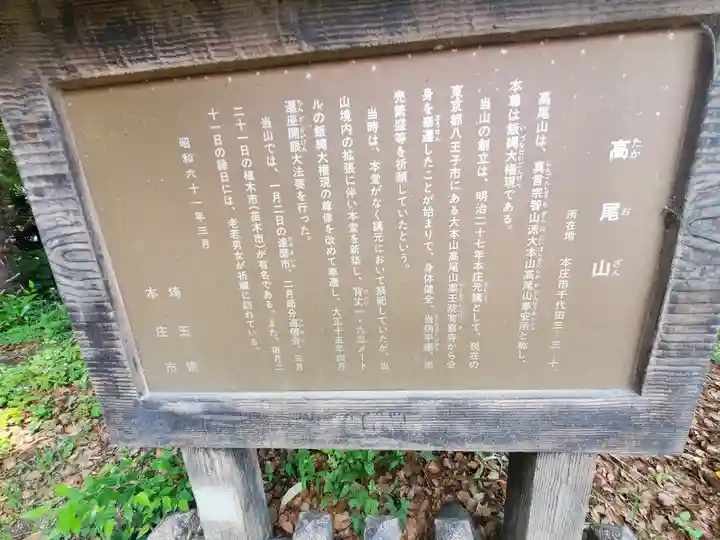 高尾山
たかおざん
所在地 本庄市千代田三-三-十
高尾山は、真言宗智山派大本山高尾山奉安所と称し、
本尊は飯縄大権現である。
当山の創立は、明治二十七年本庄元講として、現在の
東京都八王子市にある大本山高尾山薬王院有喜寺から分
身を奉遷したことが始まりで、身体健全、当病平癒、商
売繁盛等を祈願していたという。
当時は、本堂がなく講元において奉祀していたが、当
山境内の拡張に伴い本堂を新築し、背丈一・六三メート
ルの飯縄大権現の尊像を改めて奉遷し、大正十五年四月
遷座開眼大法要を行った。
当山では、一月二日の達磨市、二月節分追儺会、三月
二十一日の植木市(苗木市)が有名である。また、毎月二
十一日の縁日には、老若男女が祈願に訪れている。
昭和六十一年三月
埼玉県
本庄市